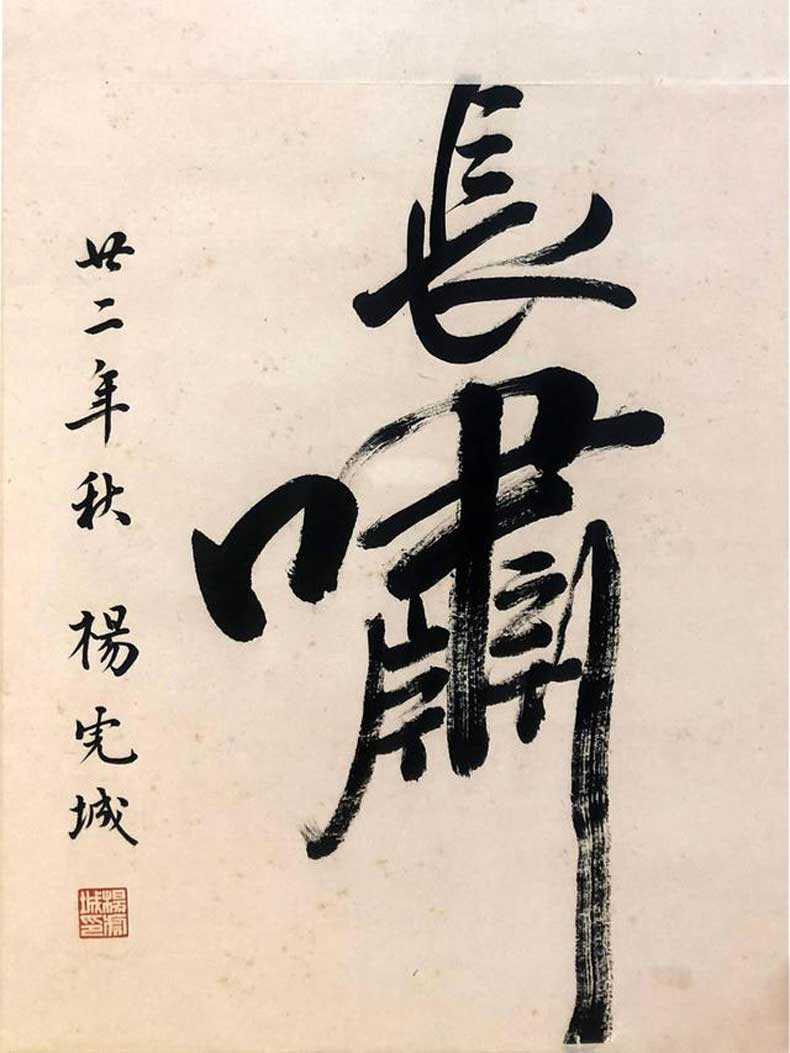 長嘯
廿二年秋 楊虎城
楊虎城印